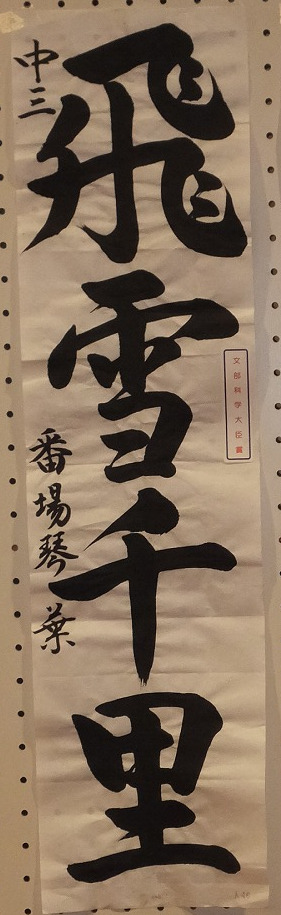 飛雪千里
文部科学大臣賞
中三
番場琴葉